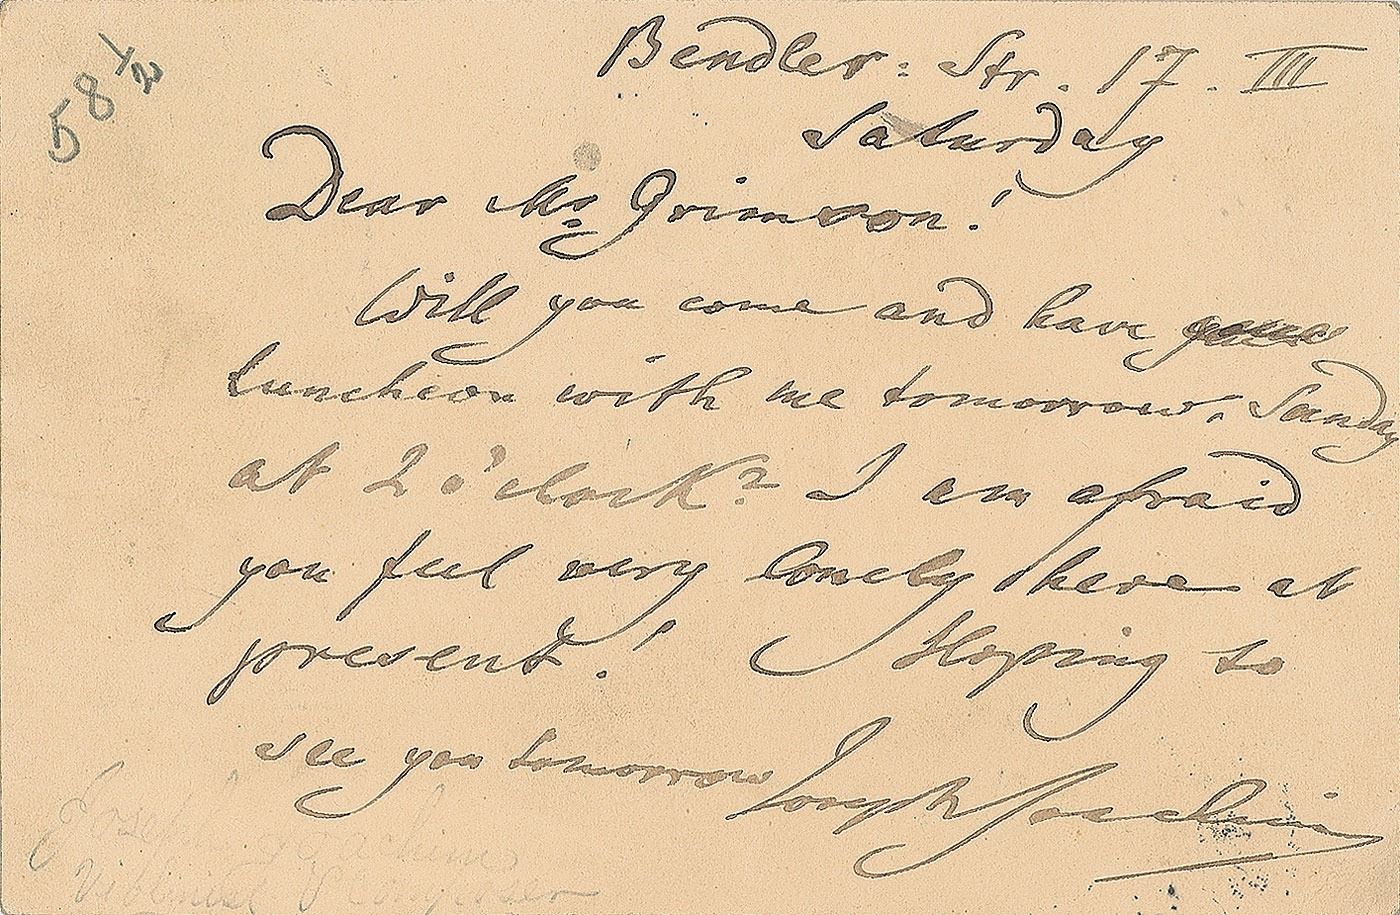 58 1/2
Bendler: Str. 17. III
Saturday
Dear Mr Grimson!
Will you come and have
luncheon with me tomorrow, Sunday
at 2 o'clock? I am afraid
you feel very lonely here at
present! Hoping to
see you tomorrow Joseph Joachim
Joseph Joachim
Violinist & Composer